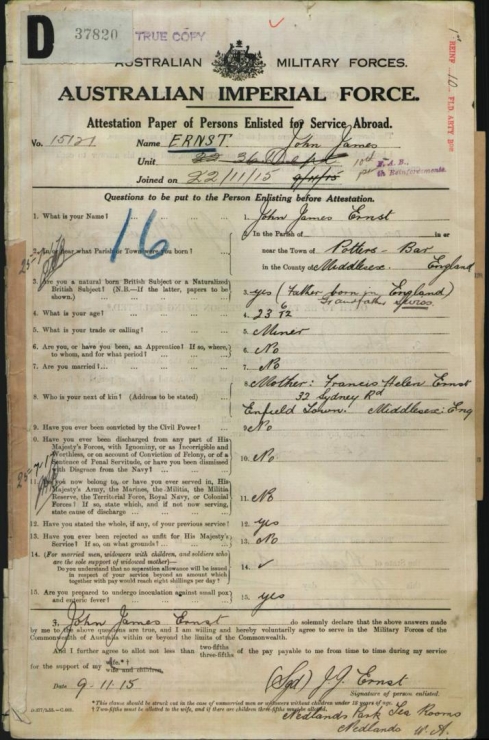 D 37820 TRUE COPY
AUSTRALIAN MILITARY FORCES.
AUSTRALIAN IMPERIAL FORCE.
Attestation Paper of Persons Enlisted for Service Abroad.
No. 15127 Name ERNST. John James
Unit
Joined on 22/11/15 9/11/15
Reinforcements.
Questions to be put to the Person Enlisting before Attestation.
1. What is your Name? 1. John James Ernst
16
2. In or near what Parish or Town were you born? In the Parish of in or
near the Town of Potters-Bar
in the County of Middlesex. England
3. Are you a natural born British Subject or a Naturalized British Subject? (N.B.—If the latter, papers to be shown.) 3. yes (Father born in England)
Grandfather Swiss
4. What is your age? 4. 23 6/12
5. What is your trade or calling? 5. Miner
6. Are you, or have you been, an Apprentice? If so, where, to whom, and for what period? 6. No
7. Are you married? 7. No
8. Who is your next of kin? (Address to be stated) 8. Mother: Francis Helen Ernst
32 Sydney Rd
Enfield Town. Middlesex: Eng
9. Have you ever been convicted by the Civil Power? 9. No
10. Have you ever been discharged from any part of His Majesty's Forces, with Ignominy, or as Incorrigible and Worthless, or on account of Conviction of Felony, or of a Sentence of Penal Servitude, or have you been dismissed with Disgrace from the Navy? 10. No
11. Do you now belong to, or have you ever served in, His Majesty's Army, the Marines, the Militia, the Militia Reserve, the Territorial Force, Royal Navy, or Colonial Forces? If so, state which, and if not now serving, state cause of discharge 11. No
12. Have you stated the whole, if any, of your previous service? 12. yes
13. Have you ever been rejected as unfit for His Majesty's Service? If so, on what grounds? 13. No
14. (For married men, widowers with children, and soldiers who are the sole support of widowed mother)—
Do you understand that no separation allowance will be issued in respect of your service beyond an amount which together with pay would reach eight shillings per day? 14. ✓
15. Are you prepared to undergo inoculation against small pox and enteric fever? 15. yes
3. John James Ernst do solemnely declare that the above answers made
by me to the above questions are true, and I am willing and hereby voluntarily agree to serve in the Military Forces of the
Commonwealth of Australia within or beyond the limits of the Commonwealth.
And I further agree to allot not less than two-fifths three-fifths of the pay payable to me from time to time during my service
for the support of my wife.*†
wife and children.
Date 9-11-15 (Sgd) J.J. Ernst
Signature of person enlisted.
* This clause should be struck out in the case of unmarried men or widowers without children under 18 years of age.
† Two-fifths must be allotted to the wife, and if there are children three-fifths must be allotted.
Nedlands Park Tea Rooms
Nedlands W.A.